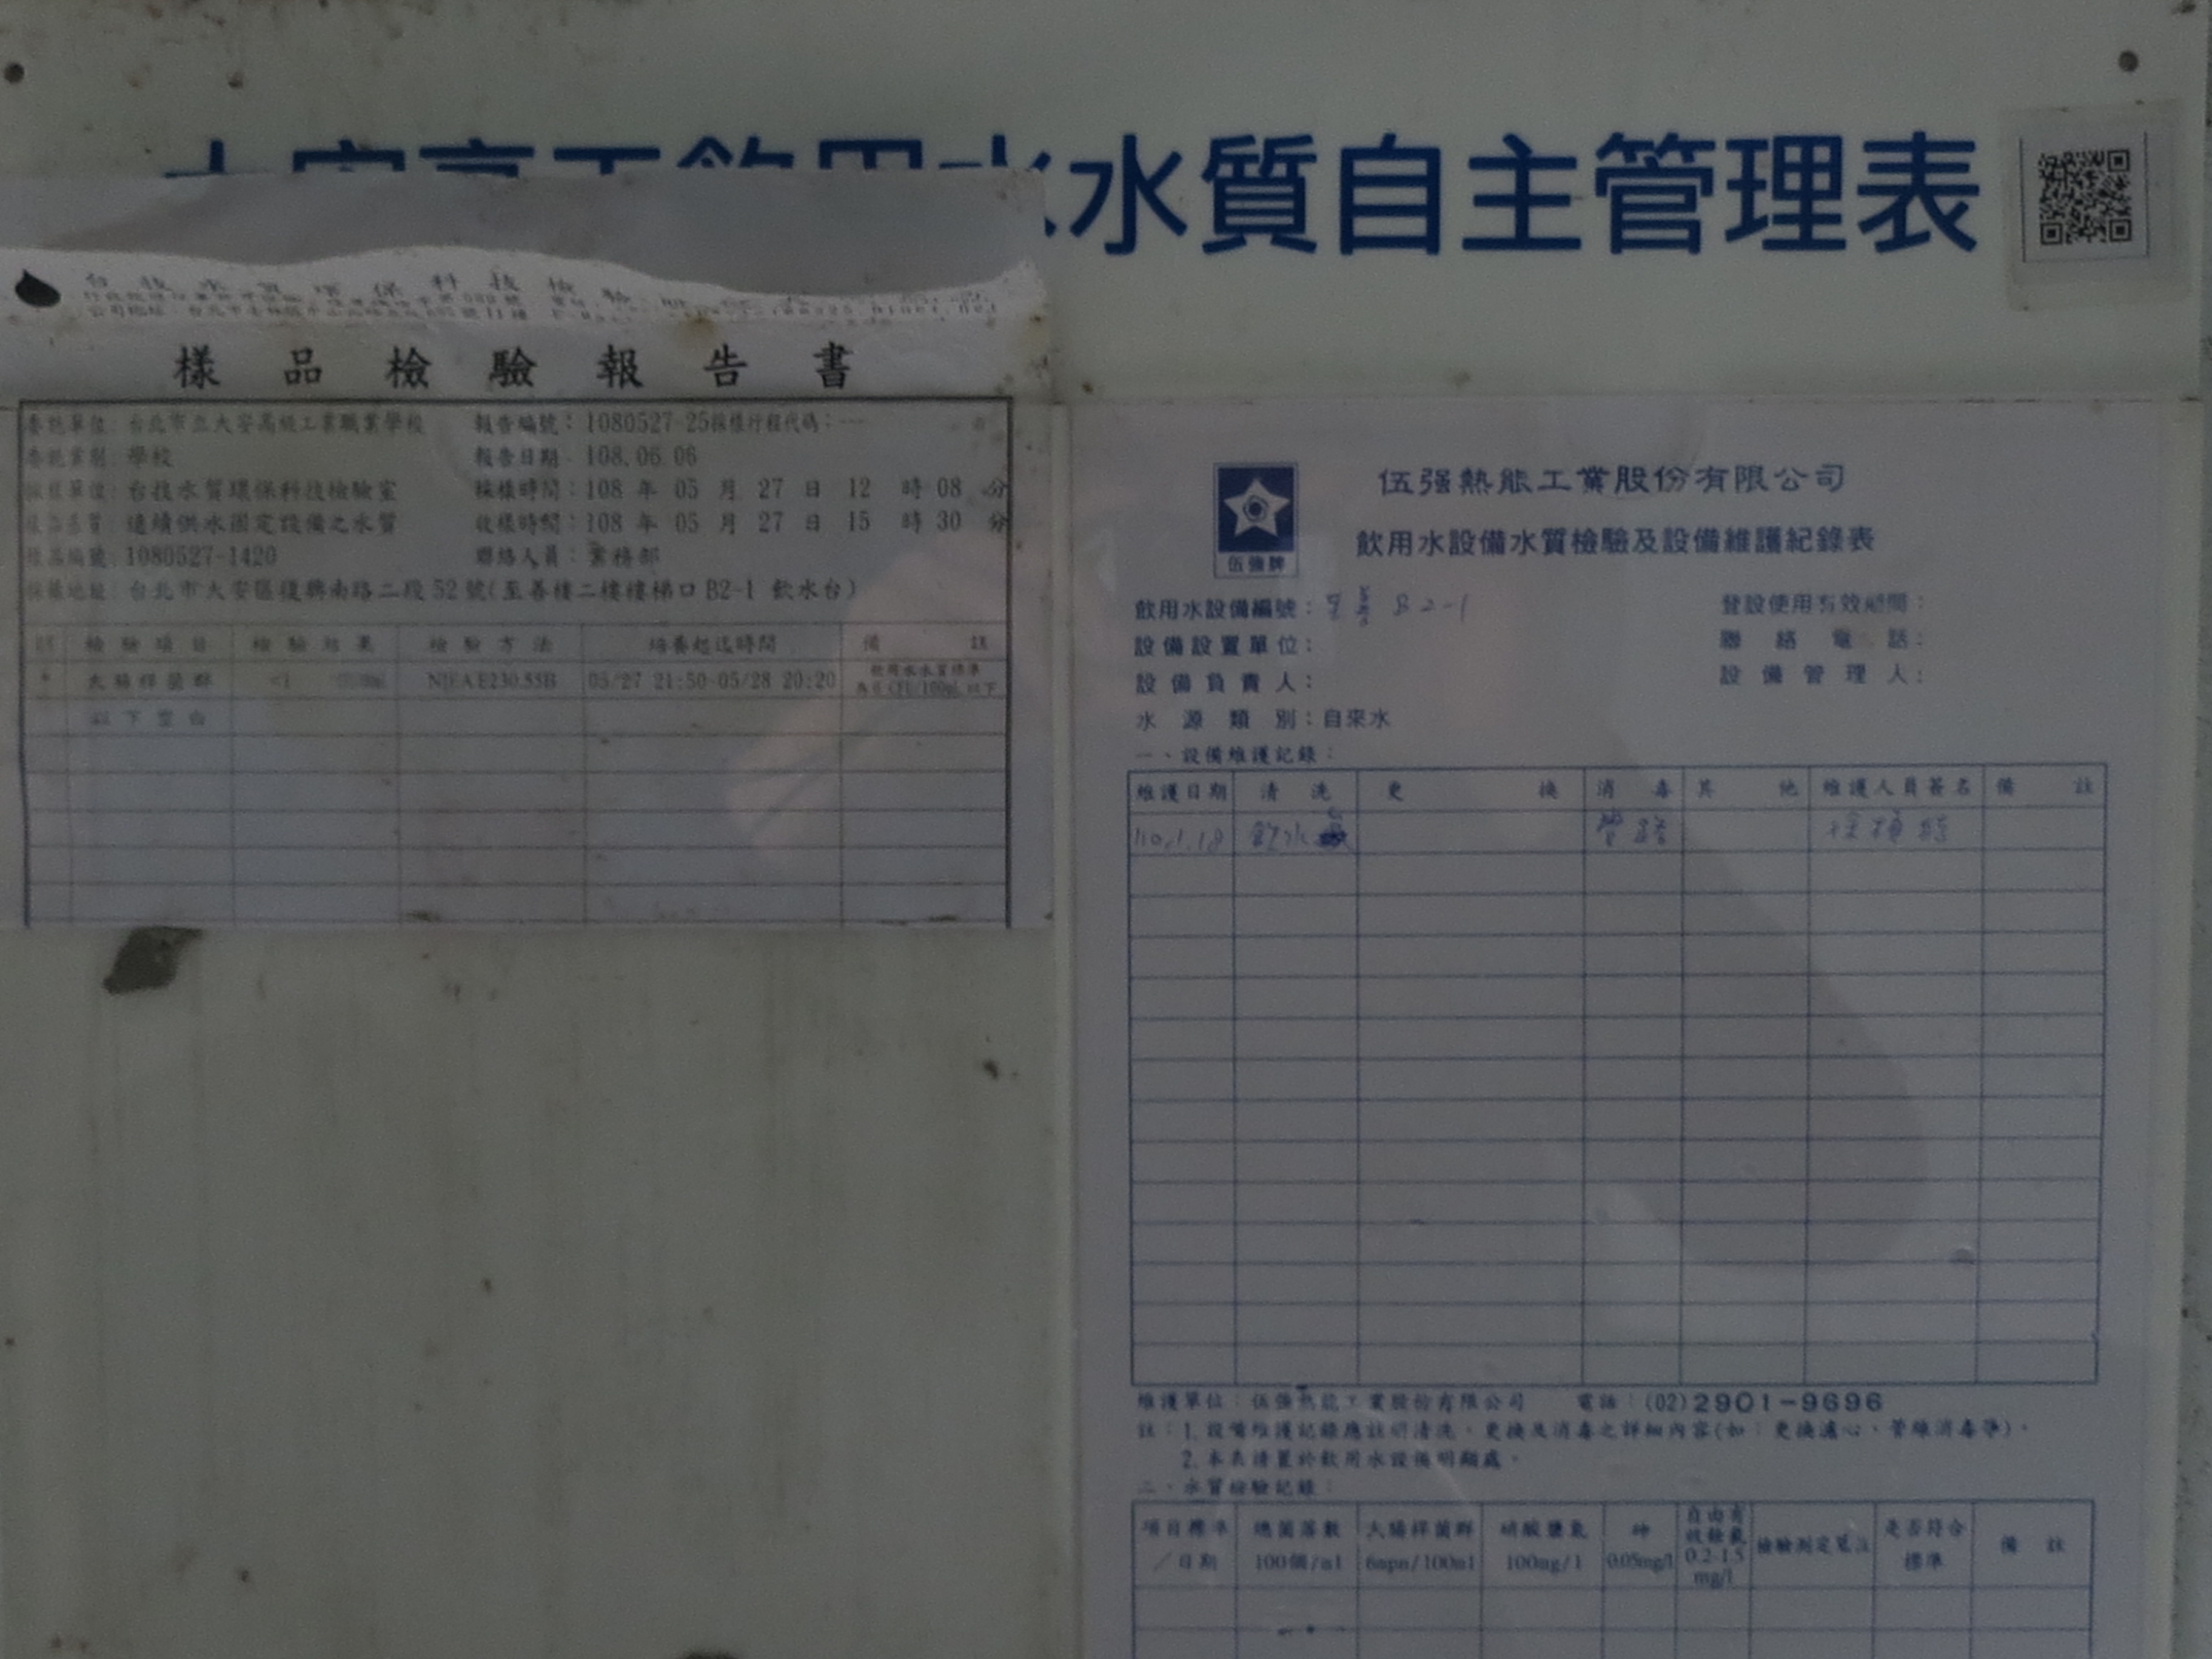 水質自主管理表
台技水質環保科技檢驗
樣品檢驗報告書
委託單位: 台北市立大安高級工業職業學校 報告編號: 1080527-25採樣行程代碼: ---
委託業別: 學校 報告日期: 108.06.06
採樣單位: 台技水質環保科技檢驗室 採樣時間: 108 年 05 月 27 日 12 時 08 分
樣品基質: 連續供水固定設備之水質 收樣時間: 108 年 05 月 27 日 15 時 30 分
樣品編號: 1080527-1420 聯絡人員: 業務部
採樣地點: 台北市大安區復興南路二段52號(至善樓二樓樓梯口 B2-1 飲水台)
檢驗項目 檢驗結果 檢驗方法 培養起迄時間 備註
* 大腸桿菌群 <1 NIEA E230.55B 05/27 21:50~05/28 20:20 飲用水水質標準
以下空白
伍強牌
伍強熱能工業股份有限公司
飲用水設備水質檢驗及設備維護紀錄表
飲用水設備編號: B2-1 登設使用有效期間:
設備設置單位: 聯絡電話:
設備負責人: 設備管理人:
水源類別:自來水
一、設備維護記錄:
維護日期 清洗 更換 消毒 其他 維護人員簽名 備註
110.1.18 飲水 管路
維護單位:伍強熱能工業股份有限公司 電話:(02)2901-9696
註:1.設備維護記錄應註明清洗、更換及消毒之詳細內容(如:更換濾心、管線消毒等)。
2.本表請置於飲用水設備明顯處。
二、水質檢驗記錄:
項目標準/日期 總菌落數 100個/ml 大腸桿菌群 6mpn/100ml 硝酸鹽氮 100mg/l 砷 0.05mg/l 自由有效餘氯 0.2-1.5 mg/l 檢驗測定單位 是否符合標準 備註